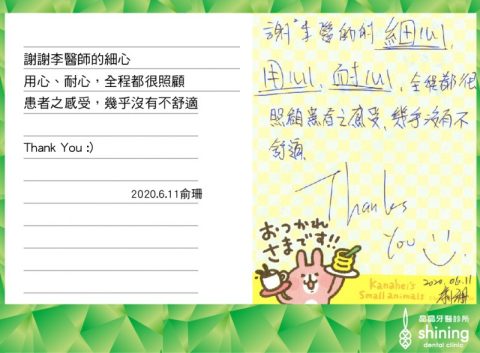 謝謝李醫師的細心
用心、耐心，全程都很照顧
患者之感受，幾乎沒有不舒適
Thank You :)
2020.6.11俞珊
謝謝李醫師的細心、
用心、耐心、全程都很
照顧患者之感受、幾乎沒有不
舒適.
Thanks
You
おつかれ
さまです!!
Kanahei's
Small animals
2020.06.11
晶晶牙醫診所
shining
dental clinic